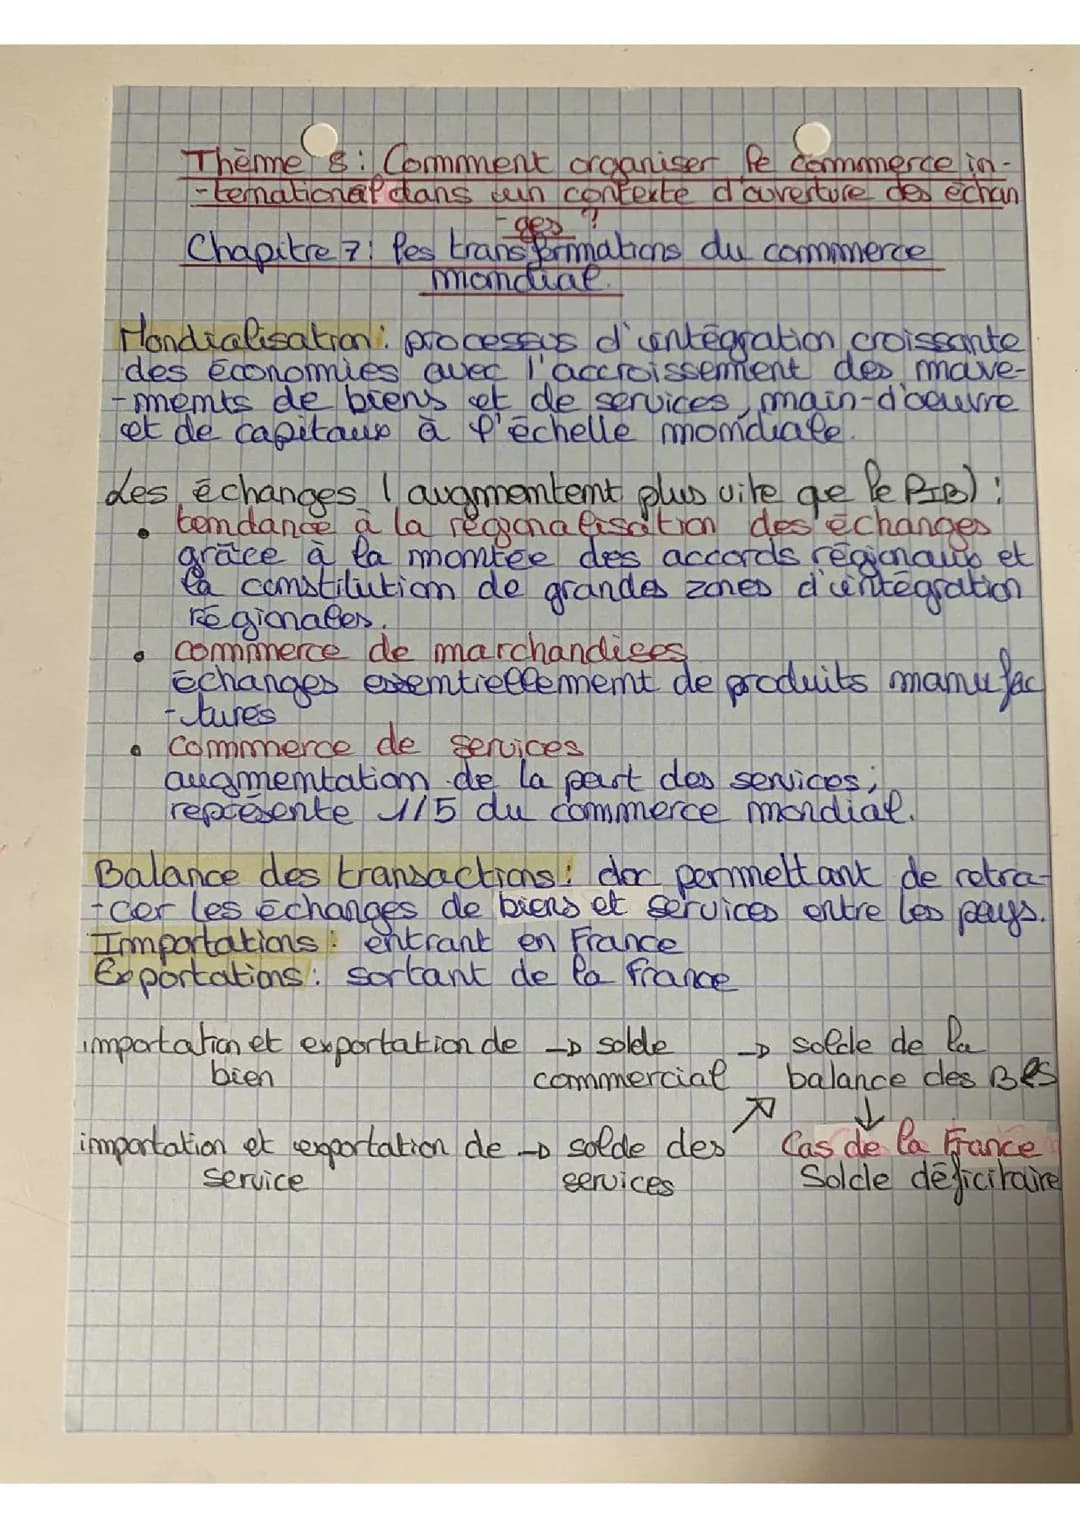 Thème 8 : Comment organiser le commerce in-
-ternational dans un contexte d'ouverture des échan
-ges ?
Chapitre 7 : les transformations du commerce
mondial.
Mondialisation : processus d'intégration croissante
des économies avec l'accroissement des mouve-
-ments de biens et de services, main-d'oeuvre
et de capitaux à l'échelle mondiale.
Les échanges (augmentent plus vite que le PIB) :
• tendance à la régionalisation des échanges
grâce à la montée des accords régionaux et
la constitution de grandes zones d'intégration
régionales.
• commerce de marchandises
échanges essentiellement de produits manufac
-turés
• commerce de services
augmentation de la part des services ;
représente 1/5 du commerce mondial.
Balance des transactions : doc permettant de retra-
-cer les échanges de biens et services entre les pays.
Importations : entrant en France
Exportations : sortant de la France
importation et exportation de → solde → solde de la
bien commercial balance des BES
↗ ↓
importation et exportation de → solde des Cas de la France
service services Solde déficitaire